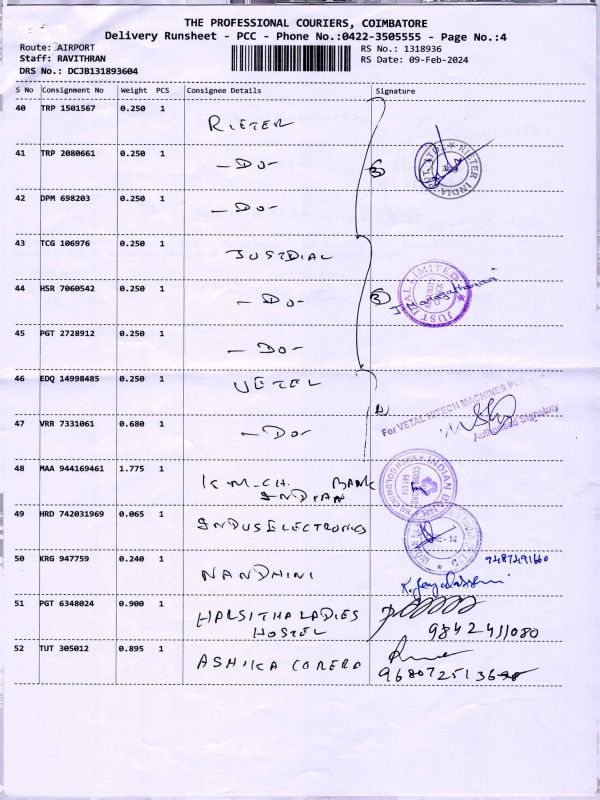 THE PROFESSIONAL COURIERS, COIMBATORE
Delivery Runsheet - PCC - Phone No.:0422-3505555 - Page No.:4
Route: AIRPORT
RS No.: 1318936
Staff: RAVITHRAN
RS Date: 09-Feb-2024
DRS No.: DCJB131893604
S No Consignment No Weight PCS Consignee Details Signature
40 TRP 1501567 0.250 1
RIETER
41 TRP 2080661 0.250 1
-DO-
3
RIETER INDIA
42 DPM 698203 0.250 1
-DO-
43 TCG 106976 0.250 1
JUSTDIAL
44 HSR 7060542 0.250 1
-DO-
3
JUST DIAL LIMITED
45 PGT 2728912 0.250 1
-DO-
46 EDQ 14998485 0.250 1
VETEL
For VETAL HITECH MACHINES
Authorised Signatory
47 VRR 7331061 0.680 1
-DO-
48 MAA 944169461 1.775 1
K.M.CH. BANK
INDIAN
INDIAN BANK
49 HRD 742031969 0.065 1
INDUS ELECTRONICS
50 KRG 947759 0.240 1
9487491660
NANDHINI
51 PGT 6348024 0.900 1
HARSITHA LADIES
HOSTEL
9842411080
52 TUT 305012 0.895 1
ASHIKA CORERA